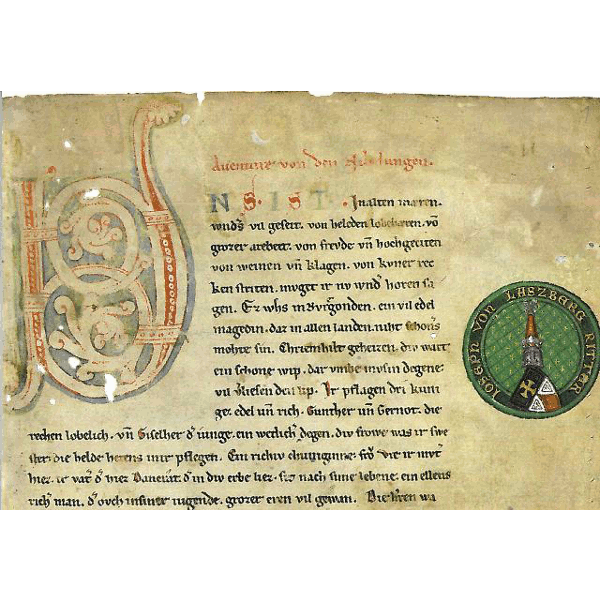 Auenture von den Nibelungen.
UNS IST. In alten mæren.
wnd's vil geseit. von heleden lobebæren. vō
grozer arebeit. von frevde vn̄ hochgeciten
von weinen vn̄ klagen. von kvner rec
ken striten. mvget ir nv wnd's horen sa
gen. Ez whs in Bvrgonden. ein vil edel
magedin. daz in allen landen. niht schon's
mohte sin. Chriemhilt geheizen. div wart
ein schone wip. dar vmbe mvsin degene
vil v'liesen den lip. Ir pflagen dri kuni
ge. edel vn̄ rich. Gunther vn̄ Gernot. die
rechen lobelich. vn̄ Giselher d' iunge. ein wetlich' degen. div frowe was ir swe
ster. die helde hetens inir pflegen. Ein richiv chuniginne. frǒ Vte ir mvt'
hiez. ir vat' d' hiez Dancrat. d' in div erbe liez. sit nach sime lebene. ein ellens
rich' man. d' ovch insiner iugende. grozer eren vil gewan. Die h'ren wa
IOSEPH VON LASZBERG RITTER